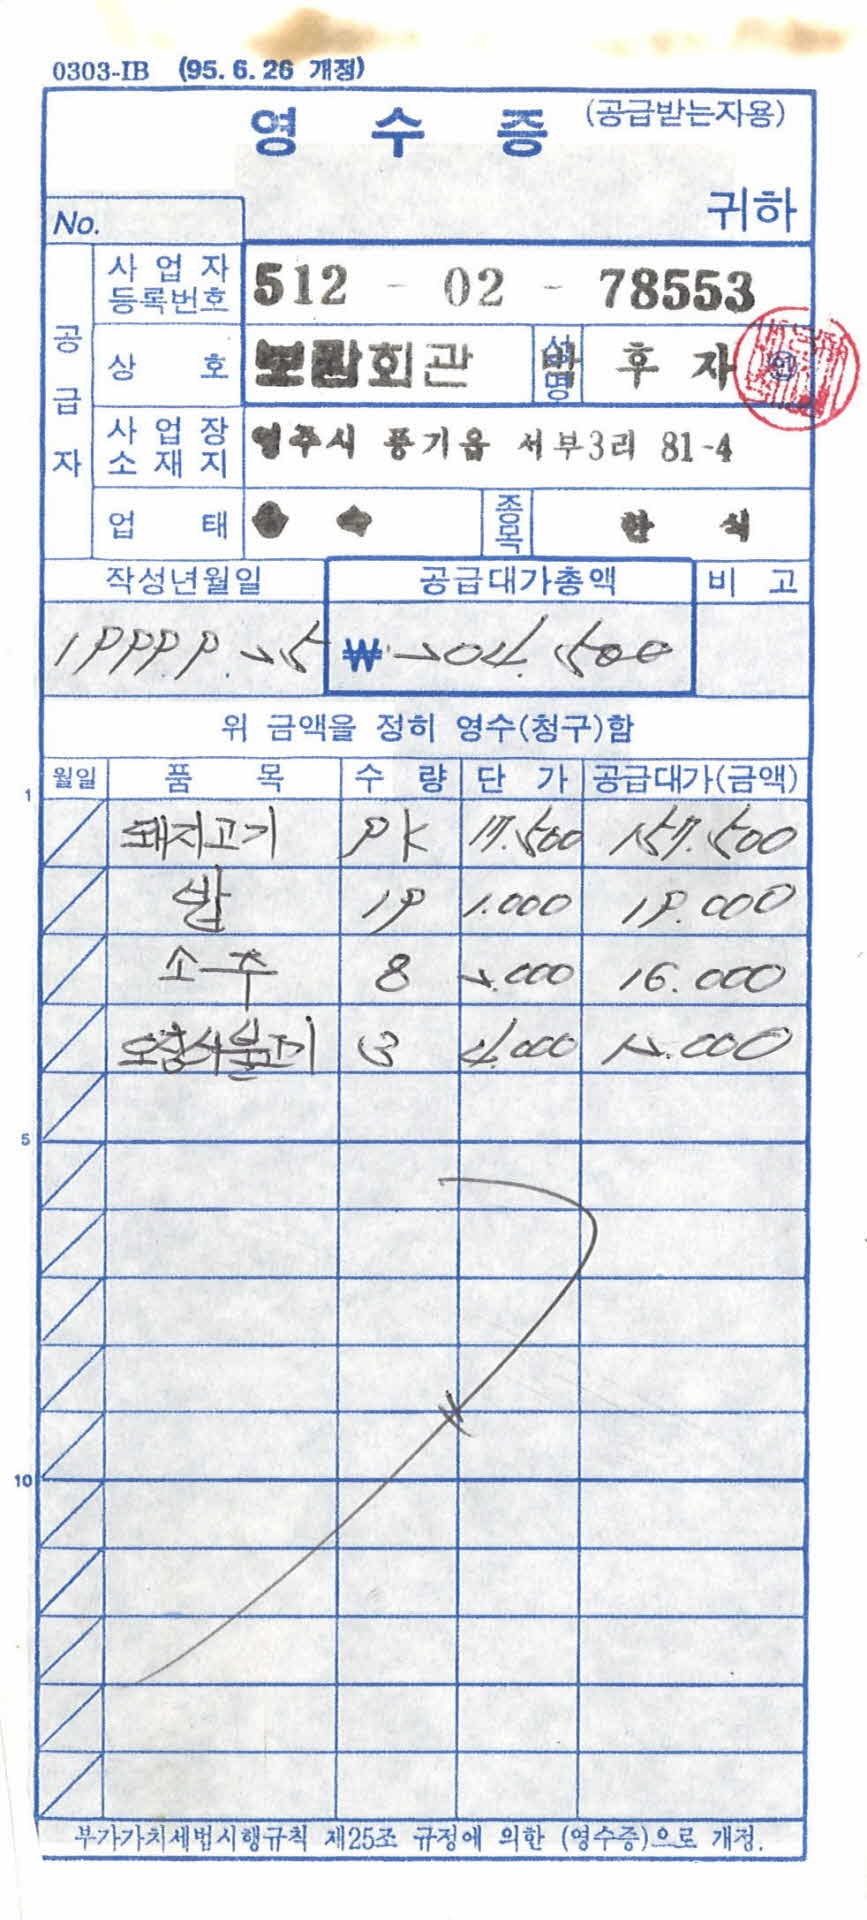 0303-IB (95. 6. 26 개정)
영 수 증 (공급받는자용)
귀하
No.
공급자
사업자등록번호 512 - 02 - 78553
상 호 보람회관 성명 박 후 자 인
사업장소재지 영주시 풍기읍 서부3리 81-4
업 태 종목 한 식
작성년월일 공급대가총액 비 고
1999 9. 25 ₩ 204.500
위 금액을 정히 영수(청구)함
월일 품 목 수 량 단 가 공급대가(금액)
1
돼지고기 9K 17.500 157.500
밥 19 1.000 19.000
소주 8 2.000 16.000
3 4.000 12.000
5
10
부가가치세법시행규칙 제25조 규정에 의한 (영수증)으로 개정.